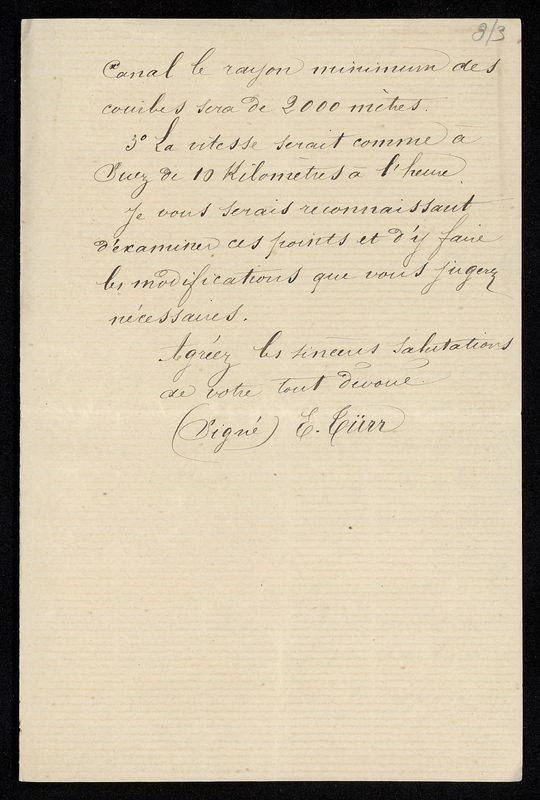 8/3
Canal le rayon minimum des
courbes sera de 2000 mètres.
3° La vitesse serait comme à
Suez de 10 Kilomètres à l'heure.
Je vous serais reconnaissant
d'examiner ces points et d'y faire
les modifications que vous jugerez
nécessaires.
Agréez les sincères salutations
de votre tout dévoué.
(Signé) E. Türr